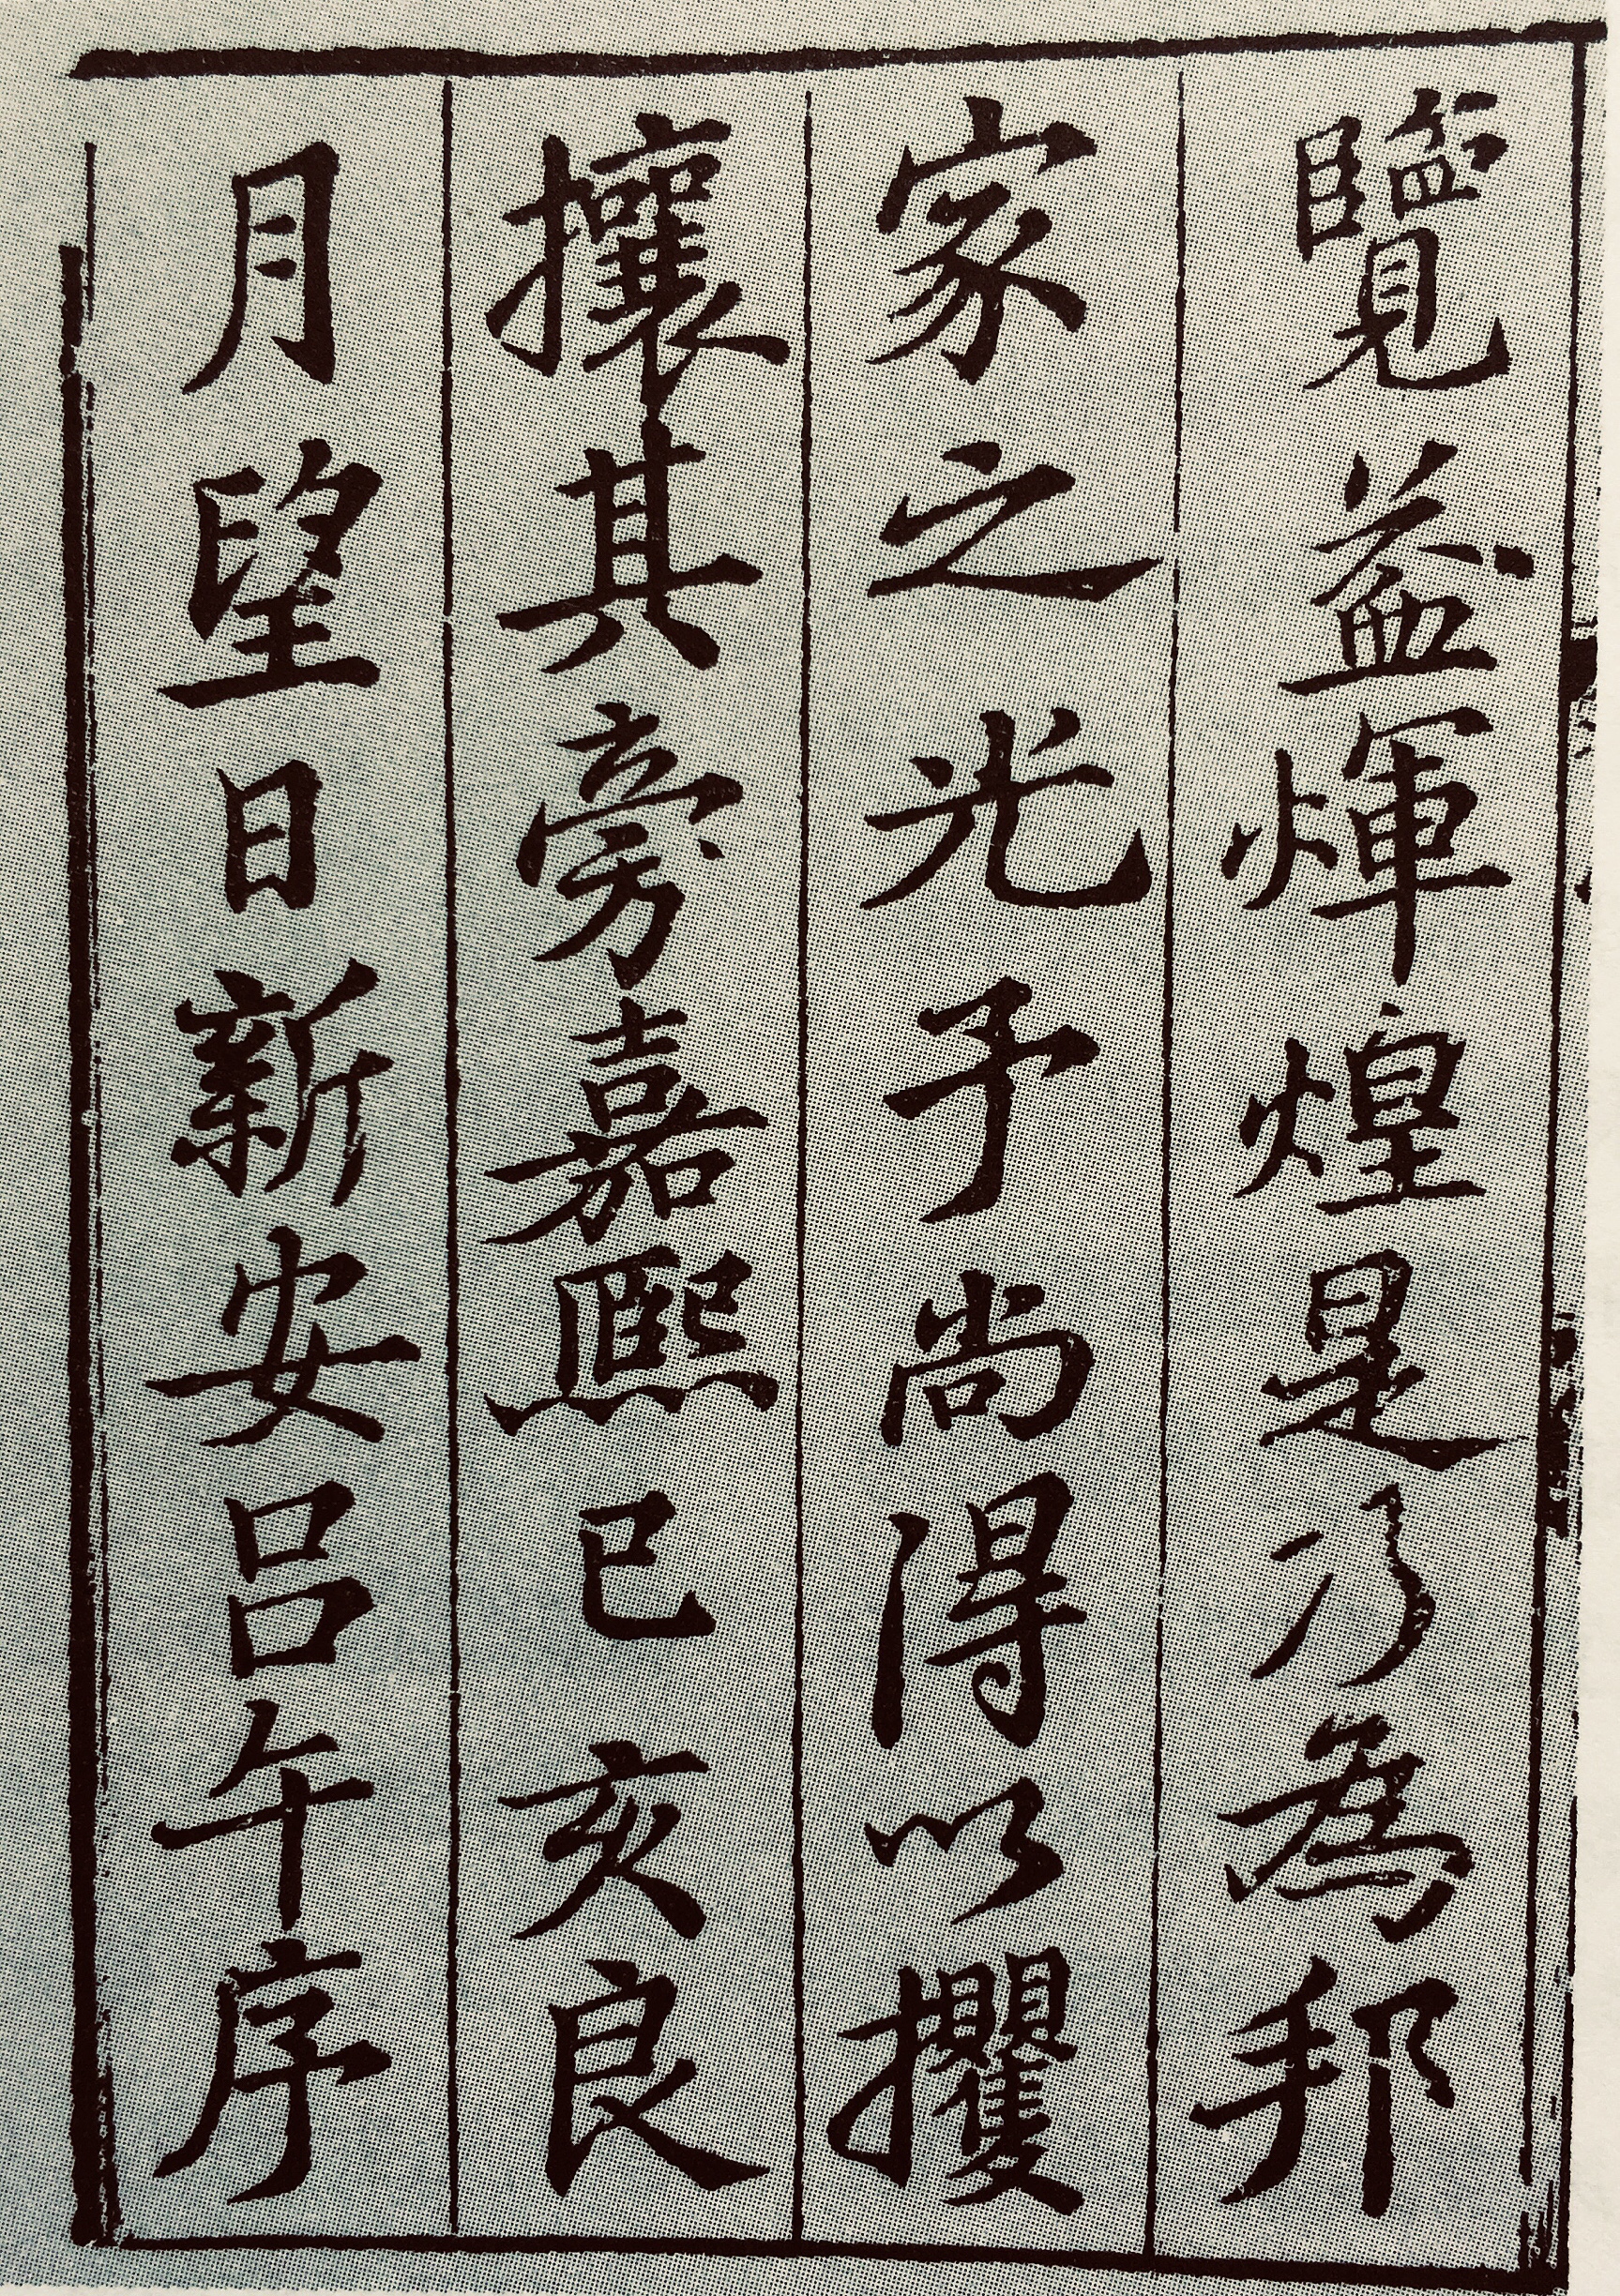 覽益煇煌是乃為邦
家之光予尚得以攫
攘其旁嘉熙已亥良
月望日新安呂午序